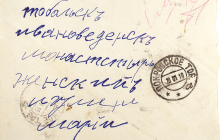 тобольскъ
ивановедерск
монастырь
женский
игумени
марiи
ПОКРОВСКОЕ ТОБ.